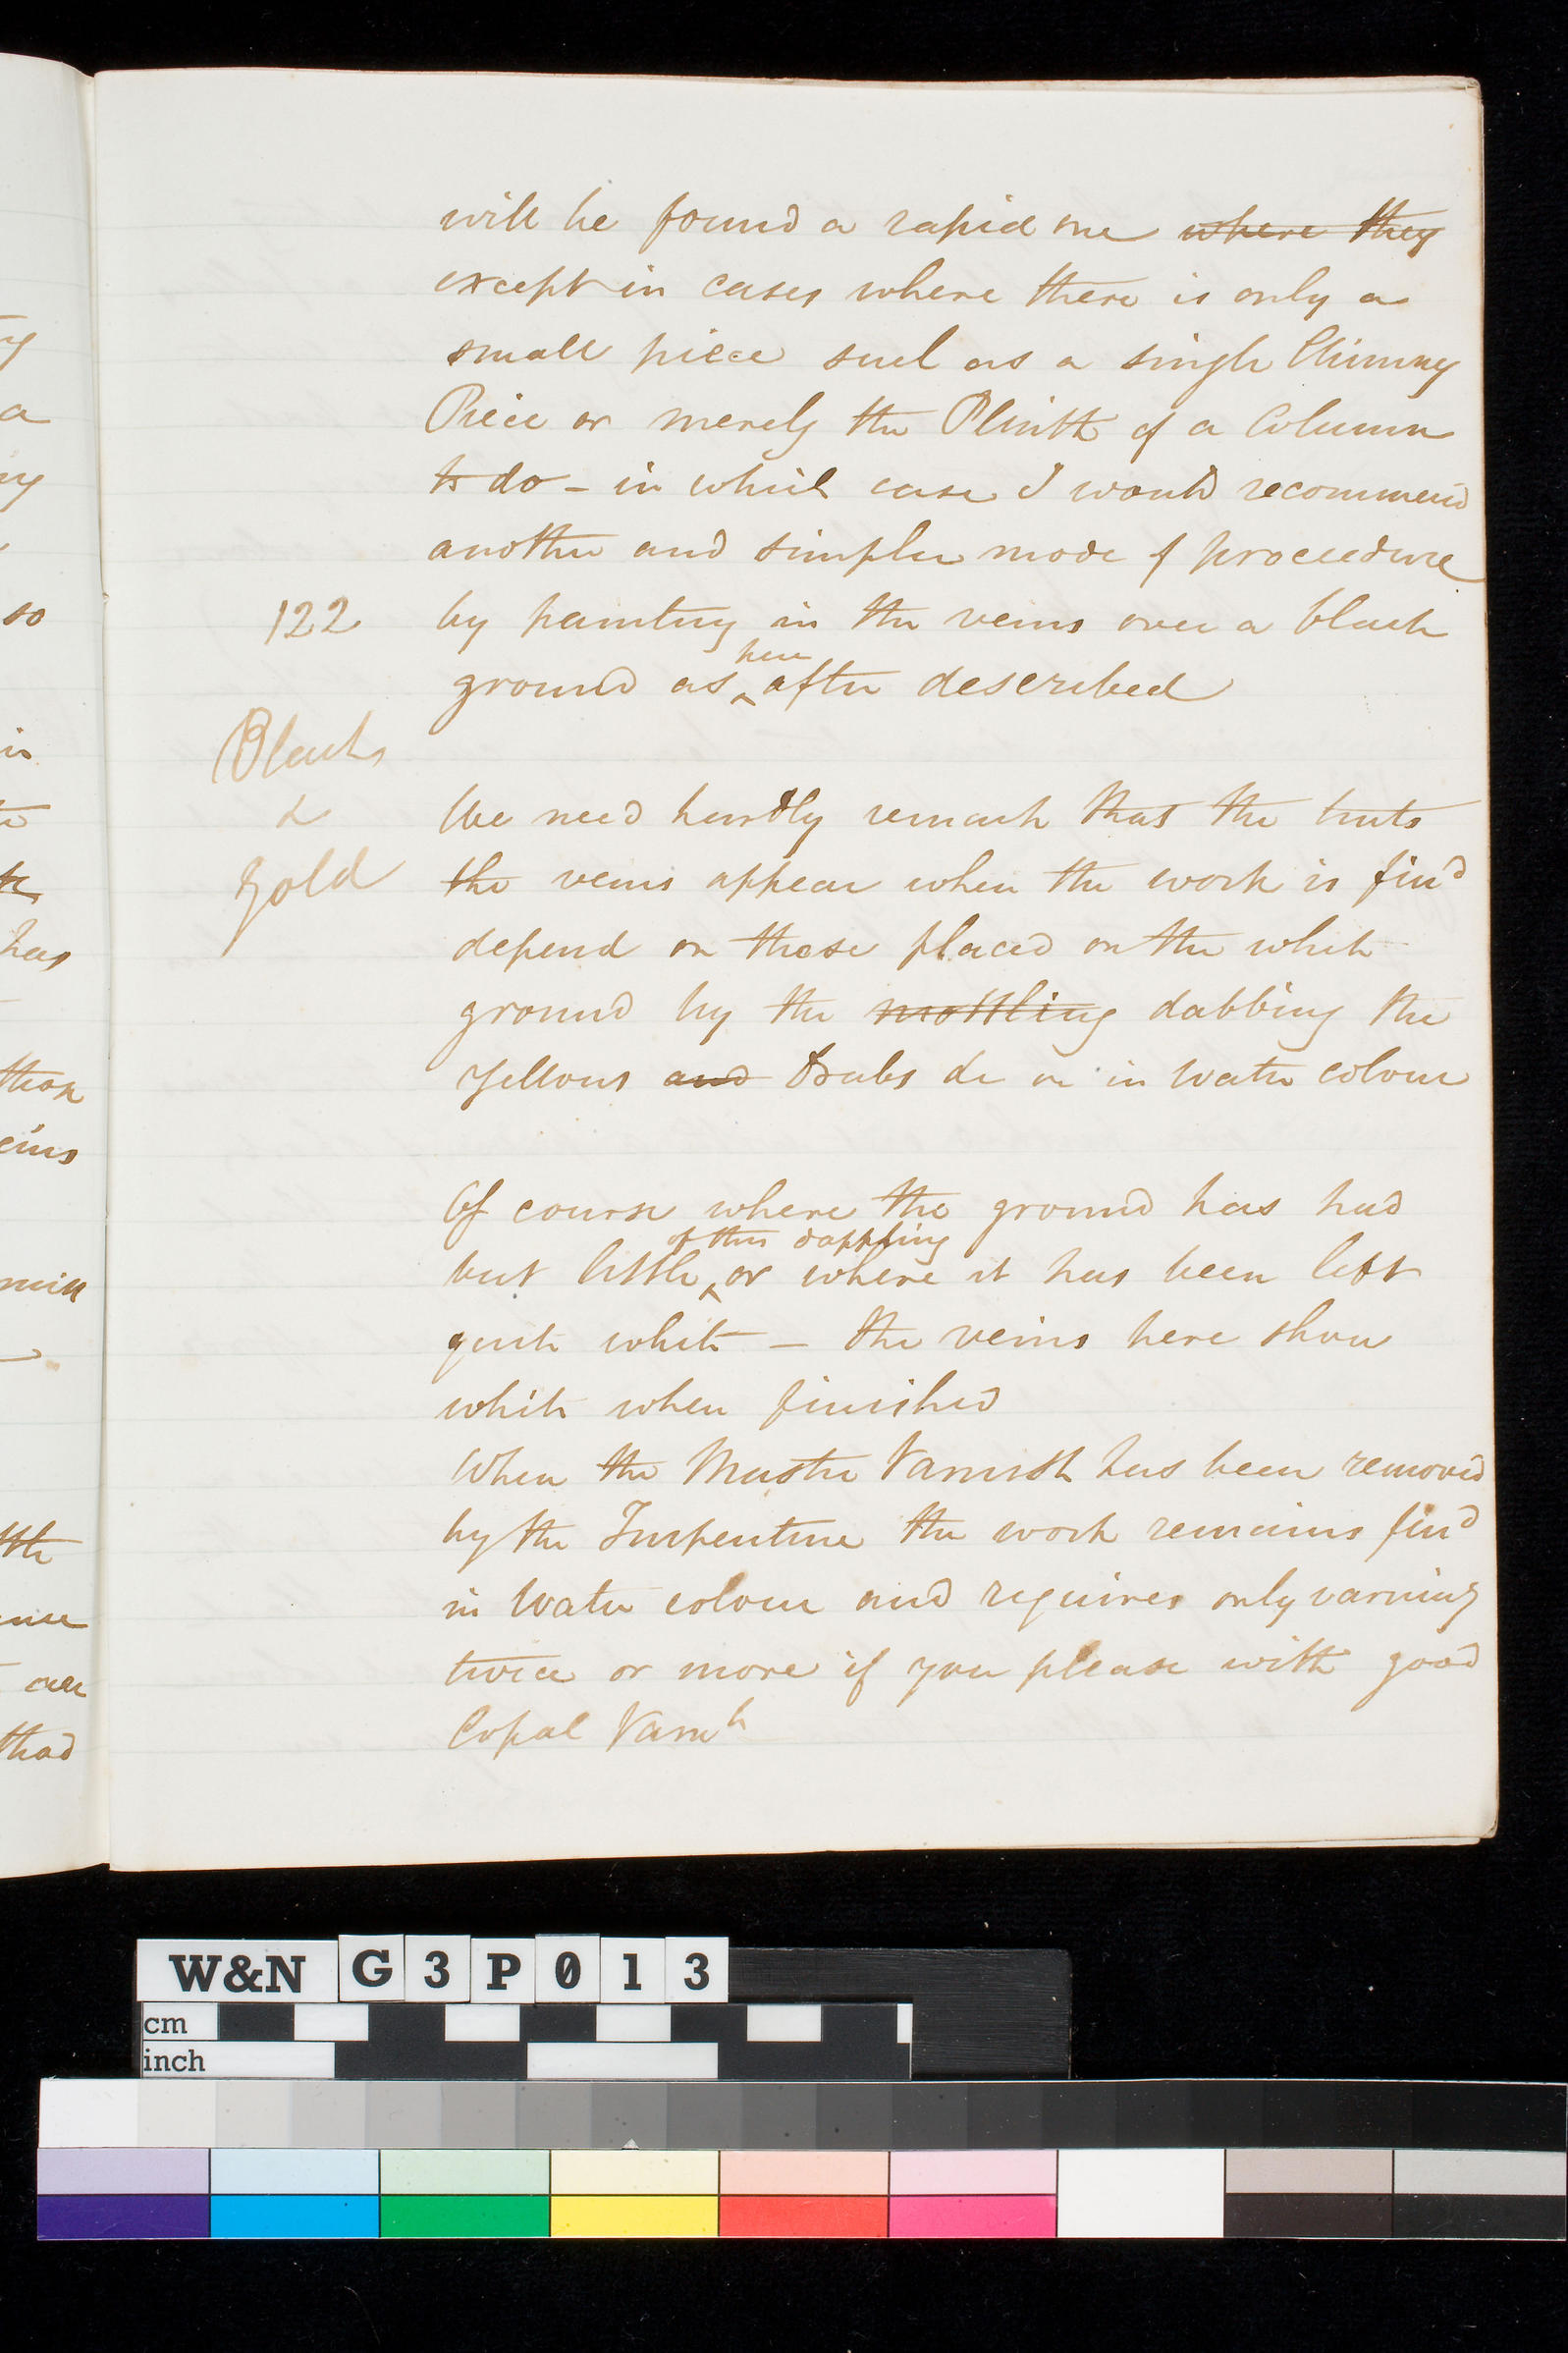 will be found a rapid one where they
except in cases where there is only a
small piece such as a single Chimney
Piece or merely the Plinth of a Column
to do - in which case I would recommend
another and simpler mode of proceedure
122 by painting in the veins over a black
here
ground as after described
Black
&
Gold
We need hardly remark that the tints
the veins appear when the work is fin^d
depend on those placed on the white
ground by the mottling dabbing the
Yellows and Drabs &c on in Water colour
Of course where the ground has had
of this dappling
but little or where it has been left
quite white — the veins here show
white when finished
When the Mastic Varnish has been removed
by the Turpentine the work remains fin^d
in Water colour and requires only varning
twice or more if you please with good
Copal Varn^h
y
a
ny
so
in
to
has
those
eins
mix
over
thad
W&N G3P013
cm
inch